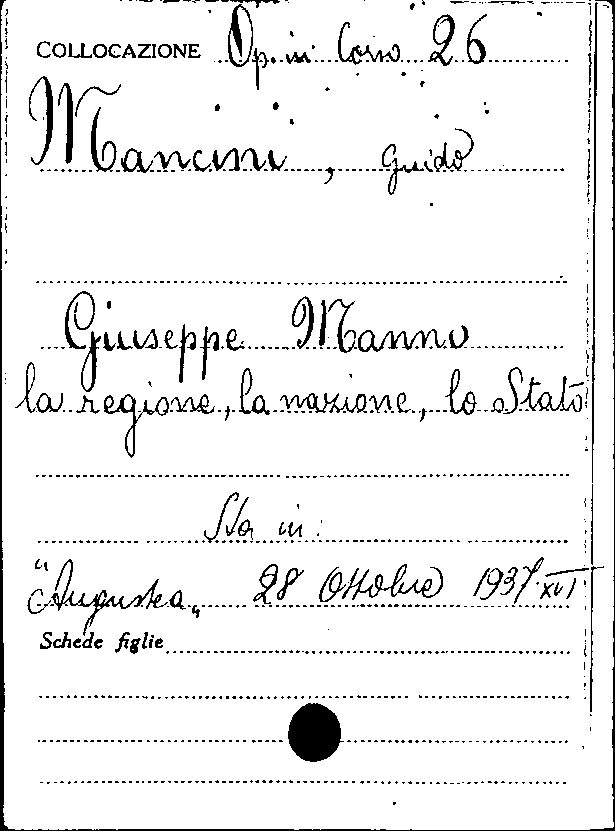 COLLOCAZIONE Op. in Corso 26
Mancini, Guido
Giuseppe Manno
la regione, la nazione, lo Stato
Sta in:
"Augustea„ 28 Ottobre 1937 XVI
Schede figlie